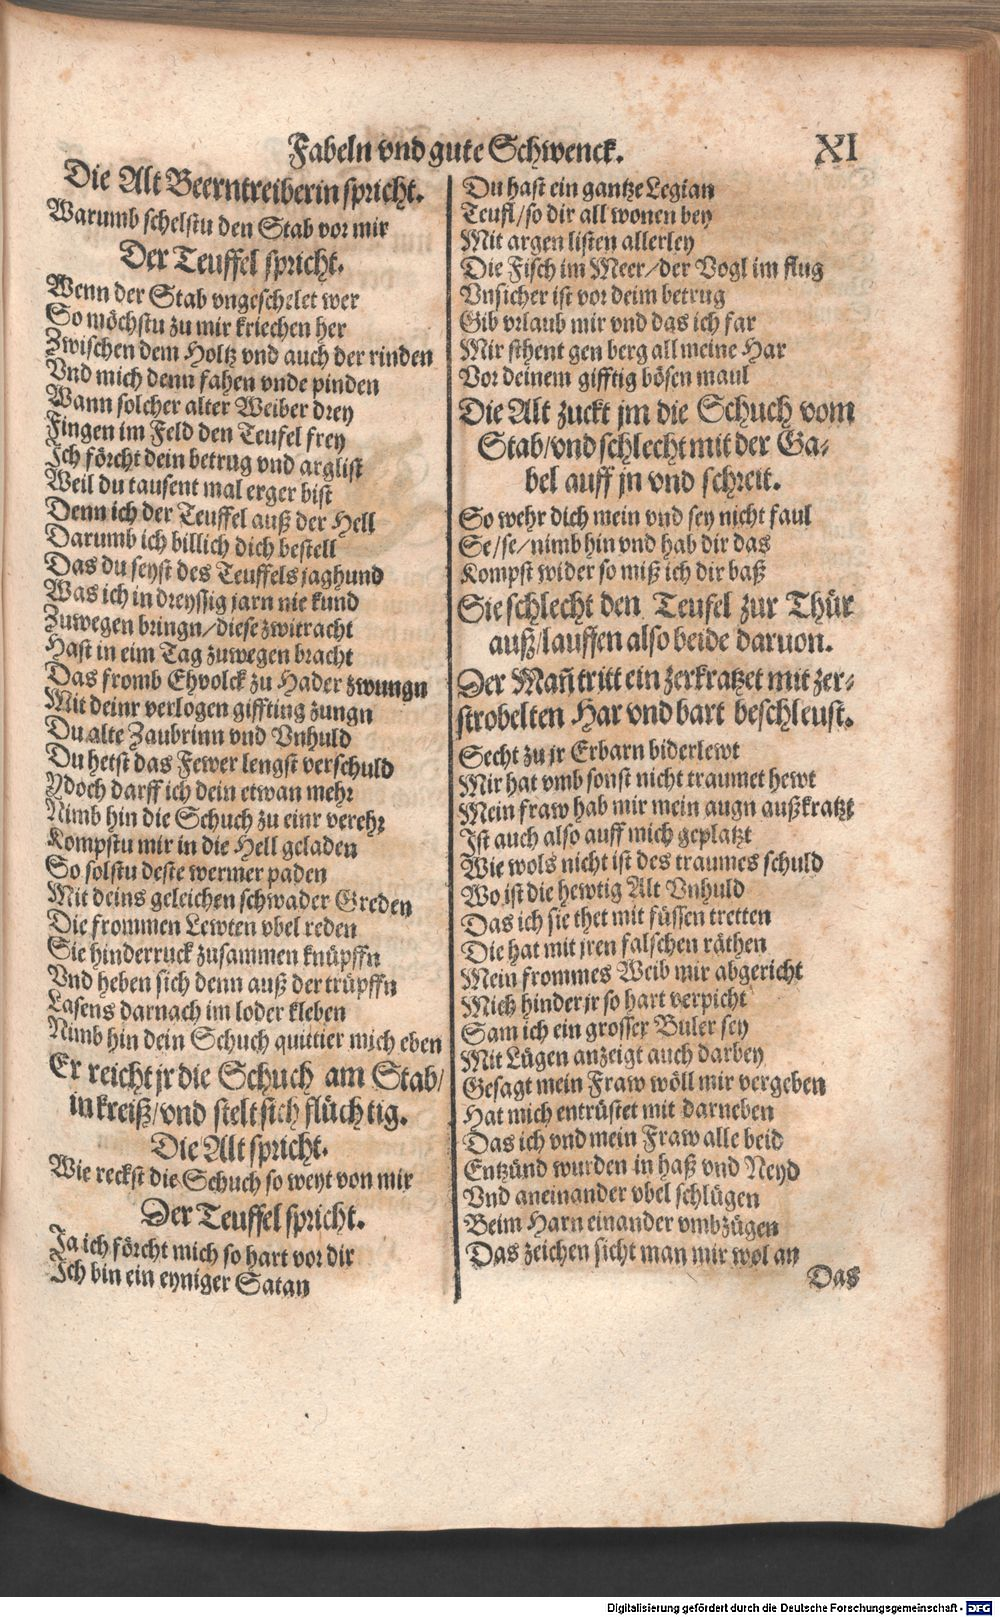 Fabeln vnd gute Schwenck.
XI
Die Alt Beerntreiberin spricht.
Warumb schelstu den Stab vor mir
Der Teuffel spricht.
Wenn der Stab vngeschelet wer
So möchstu zu mir kriechen her
Zwischen dem Holtz vnd auch der rinden
Vnd mich denn fahen vnde pinden
Wann solcher alter Weiber drey
Fingen im Feld den Teufel frey
Ich förcht dein betrug vnd arglist
Weil du tausent mal erger bist
Denn ich der Teuffel auß der Hell
Darumb ich billich dich bestell
Das du seyst des Teuffels jaghund
Was ich in dreyssig jarn nie kund
Zuwegen bringn/diese zwitracht
Hast in eim Tag zuwegen bracht
Das fromb Ehvolck zu Hader zwungn
Mit deinr verlogen giffting zungn
Du alte Zaubrinn vnd Vnhuld
Du hetst das Fewer lengst verschuld
Ydoch darff ich dein etwan mehr
Nimb hin die Schuch zu einr verehr
Kompstu mir in die Hell geladen
So solstu deste wermer paden
Mit deins geleichen schwader Greden
Die frommen Lewten vbel reden
Sie hinderruck zusammen knüpffn
Vnd heben sich denn auß der trüpffn
Lasens darnach im loder kleben
Nimb hin dein Schuch quittier mich eben
Er reicht jr die Schuch am Stab/
in kreiß/vnd stelt sich flüchtig.
Die Alt spricht.
Wie reckst die Schuch so weyt von mir
Der Teuffel spricht.
Ja ich förcht mich so hart vor dir
Ich bin ein eyniger Satan
Du hast ein gantze Legian
Teufl/so dir all wonen bey
Mit argen listen allerley
Die Fisch im Meer/der Vogl im flug
Vnsicher ist vor deim betrug
Gib vrlaub mir vnd das ich far
Mir sthent gen berg all meine Har
Vor deinem gifftig bösen maul
Die Alt zuckt jm die Schuch vom
Stab/vnd schlecht mit der Ga-
bel auff jn vnd schreit.
So wehr dich mein vnd sey nicht faul
Se/se/nimb hin vnd hab dir das
Kompst wider so miß ich dir baß
Sie schlecht den Teufel zur Thür
auß/lauffen also beide daruon.
Der Mañ tritt ein zerkratzet mit zer-
strobelten Har vnd bart beschleust.
Secht zu jr Erbarn biderlewt
Mir hat vmb sonst nicht traumet hewt
Mein fraw hab mir mein augn außkratzt
Ist auch also auff mich geplatzt
Wie wols nicht ist des traumes schuld
Wo ist die hewtig Alt Vnhuld
Das ich sie thet mit füssen tretten
Die hat mit jren falschen räthen
Mein frommes Weib mir abgericht
Mich hinder jr so hart verpicht
Sam ich ein grosser Buler sey
Mit Lügen anzeigt auch darbey
Gesagt mein Fraw wöll mir vergeben
Hat mich entrüstet mit darneben
Das ich vnd mein Fraw alle beid
Entzünd wurden in haß vnd Neyd
Vnd aneinander vbel schlügen
Beim Harn einander vmbzügen
Das zeichen sicht man mir wol an
Das
Digitalisierung gefördert durch die Deutsche Forschungsgemeinschaft - DFG